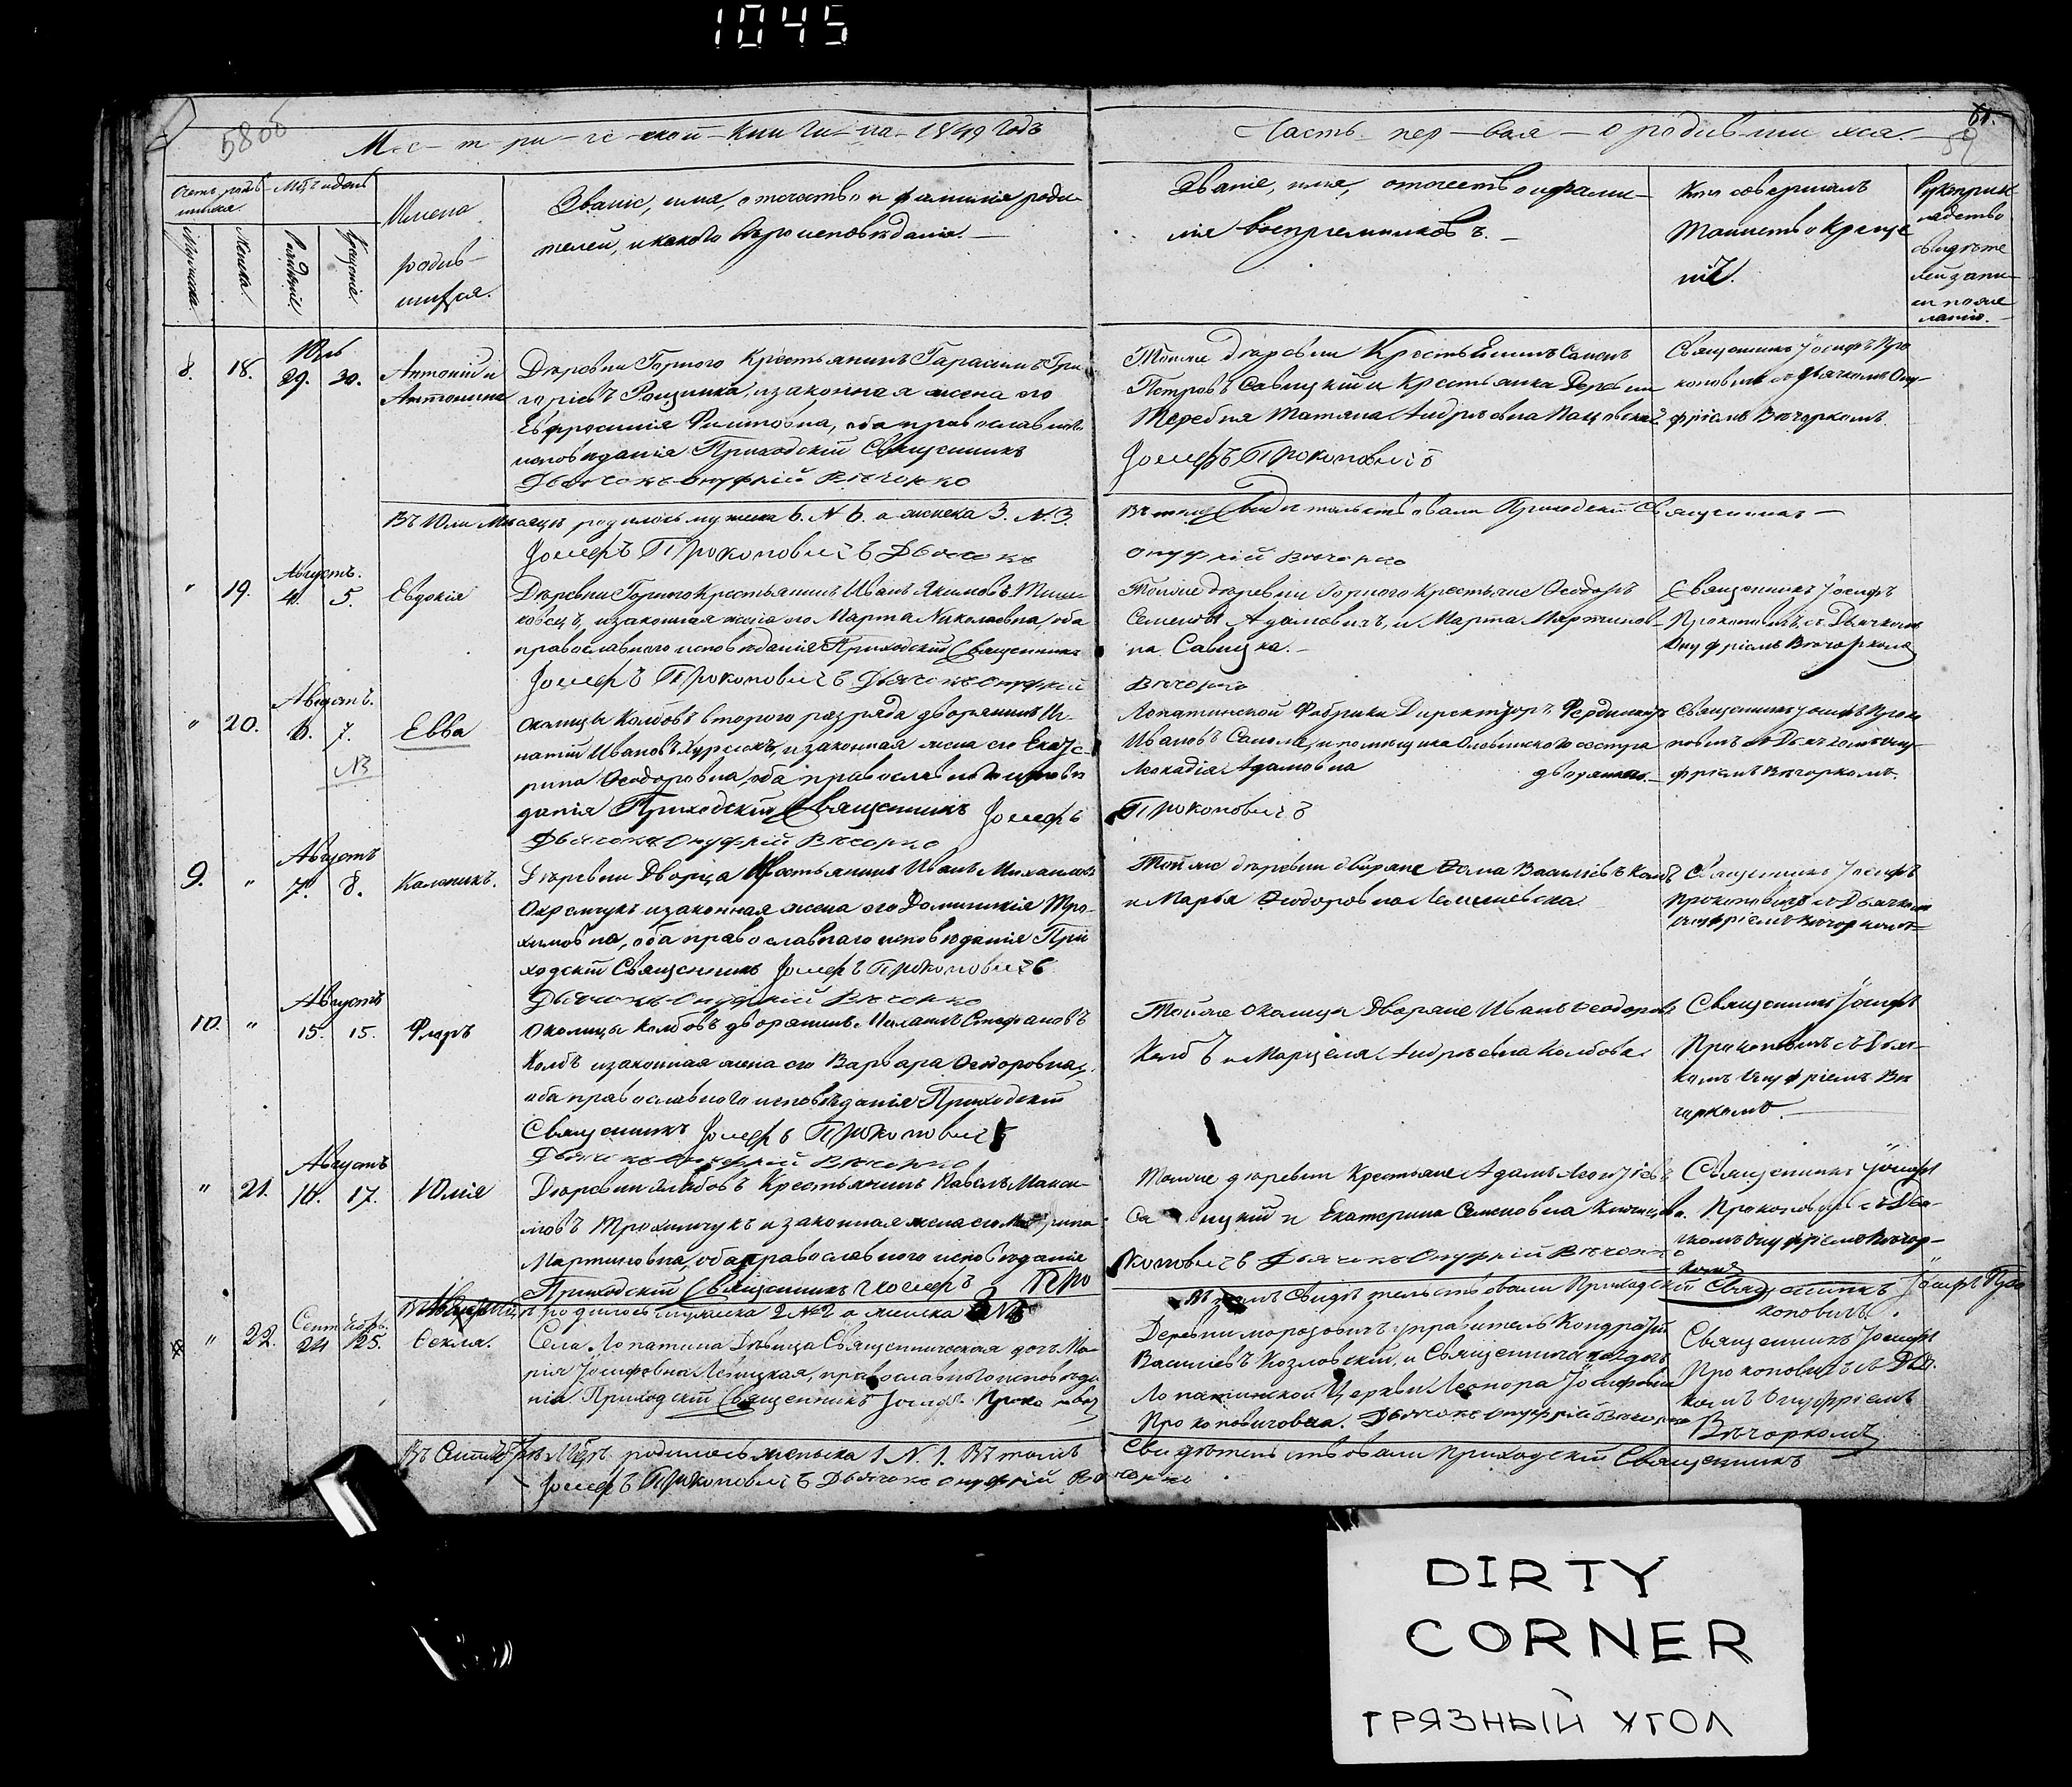 1045
580об
61.
59
Мет-ри-че-ской Кни-ги-на 1849 годъ
Часть пер-вая о родив-ших-ся.
Счетъ родив-
шихся.
Мѣсяцъ и день
Мужеска.
Женска.
Рожденія.
Крещенія.
Имена
родив-
шихся.
Званіе, имя, отечество и фамилія роди-
телей, и какого вѣроисповѣданія.
Званіе, имя, отечество и фами-
лія воспріемниковъ.
Кто совершалъ
таинство креще
нія.
Рукоприк-
ладство
свидѣте
лей запи-
си по же
ланію.
8. 18. Юль 29. 30.
Антоній и
Антонина
Деревни Горного Крестьянинъ Гарасимъ Гри-
горіевъ, и законная жена его
Евфросинія Филиповна, оба православного
исповѣданія Приходскій Священникъ
Дьячокъ Онуфрій Вѣчорко
Тойже деревни Крестьянинъ
Петровъ Савицкій и Крестьянка Деревни
Теребня Татяна Андреевна
Іосифъ Прокоповичъ
Священникъ Іосифъ Про
коповичъ съ Дьячкомъ Ону-
фріемъ Вѣчоркомъ.
Въ Юли Мѣсяцѣ родилось мужска 6. N 6. а женска 3. N. 3.
Въ томъ Свидѣтельствовали Приходскій Священникъ
Іосифъ Прокоповичъ Дьячокъ
Онуфрій Вѣчорко
" 19. Августъ. 4. 5. Евдокія
Деревни Горного Крестьянинъ Иванъ Якимовъ
и законная жена его Марта Николаевна, оба
православного исповѣданія Приходскій Священникъ
Іосифъ Прокоповичъ Дьячокъ Онуфрій
Тойже деревни Горного Крестьяне Феодоръ
Семеновъ Адамовичъ, и Марта Мартинов-
на Савицка.
Вѣчорко
Священникъ Іосифъ
Прокоповичъ съ Дьячкомъ
Онуфріемъ Вѣчоркомъ
" 20. Августъ. 6. 7. Евва
NB
Околицы Колбовъ второго разряда дворянинъ Иг-
натій Ивановъ и законная жена его Екате-
рина Феодоровна, оба православного исповѣ
данія Приходскій Священникъ Іосифъ
Дьячокъ Онуфрій Вѣчорко
Лопатинской Фабрики Директоръ Фердинандъ
Ивановъ и помѣщика сестра
Леокадія Адамовна дворянка.
Прокоповичъ
Священникъ Іосифъ Проко
повичъ съ Дьячкомъ Ону-
фріемъ Вѣчоркомъ.
9. " Августъ 7. 8. Каленикъ.
Деревни Дворца Крестьянинъ Иванъ Михаиловъ
Охремчукъ и законная жена его Доминикія Тро-
химовна, оба православного исповѣданія При
ходскій Священникъ Іосифъ Прокоповичъ
Дьячокъ Онуфрій Вѣчорко
Тойже деревни дворяне Фома Василіевъ Колбъ
и Марья Феодоровна
Священникъ Іосифъ
Прокоповичъ съ Дьячкомъ
Онуфріемъ Вѣчоркомъ
10. " Августъ 15. 15. Флоръ
Околицы Колбовъ дворянинъ Стефановъ
Колбъ и законная жена его Варвара Феодоровна,
оба православного исповѣданія Приходскій
Священникъ Іосифъ Прокоповичъ
Дьячокъ Онуфрій Вѣчорко
Тойже Околицы Дворяне Иванъ Феодоровъ
Колбъ и Марцеля Андреевна Колбова
Священникъ Іосифъ
Прокоповичъ съ Дьяч-
комъ Онуфріемъ Вѣ
чоркомъ.
" 21. Августъ 16. 17. Юлія
Деревни Крестьянинъ Павелъ Макси-
мовъ Трохимчукъ и законная жена его
Мартиновна, оба православного исповѣданія
Приходскій Священникъ Іосифъ Про
Тойже деревни Крестьяне Адамъ Леонтіевъ
Савицкій и Екатерина Семеновна
коповичъ Дьячокъ Онуфрій Вѣчорко
Священникъ Іосифъ
Прокоповичъ съ Дья-
чкомъ Онуфріемъ Вѣчор-
комъ
родилось мужска 2 N 2 а женска
Въ томъ Свидѣтельствовали Приходскій Священникъ Іосифъ Про
коповичъ.
" 22. Сентябрь. 24 25. Фекля.
Села Лопатина Дѣвица Священническая дочь Ма-
рія Іосифовна Левицкая, православного исповѣда
нія Приходскій Священникъ Іосифъ
Деревни Морозовичъ управитель Кондратій
Василіевъ Козловскій, и Священника дочь
Лопатинской Церкви Леонора Іосифовна
Прокоповичовна. Дьячокъ Онуфрій Вѣчорко
Священникъ Іосифъ
Прокоповичъ съ Дья
комъ Онуфріемъ
Вѣчоркомъ
Въ Сентябрѣ Мѣцѣ родилось женска 1 N. 1. Въ томъ
Свидѣтельствовали Приходскій Священникъ
Іосифъ Прокоповичъ Дьячокъ Онуфрій Вѣчорко
DIRTY
CORNER
ГРЯЗНЫЙ УГОЛ